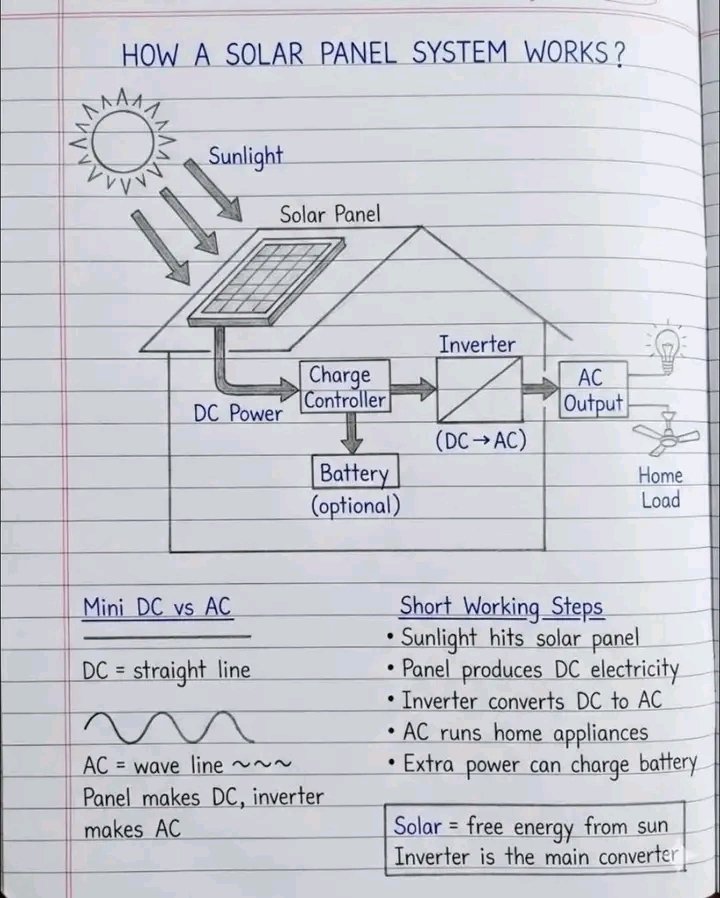 HOW A SOLAR PANEL SYSTEM WORKS?
Sunlight
Solar Panel
DC Power
Charge
Controller
Battery
(optional)
Inverter
(DC→AC)
AC
Output
Home
Load
Mini DC vs AC
DC = straight line
AC = wave line ~~~
Panel makes DC, inverter
makes AC
Short Working Steps
• Sunlight hits solar panel
• Panel produces DC electricity
• Inverter converts DC to AC
• AC runs home appliances
• Extra power can charge battery
Solar = free energy from sun
Inverter is the main converter